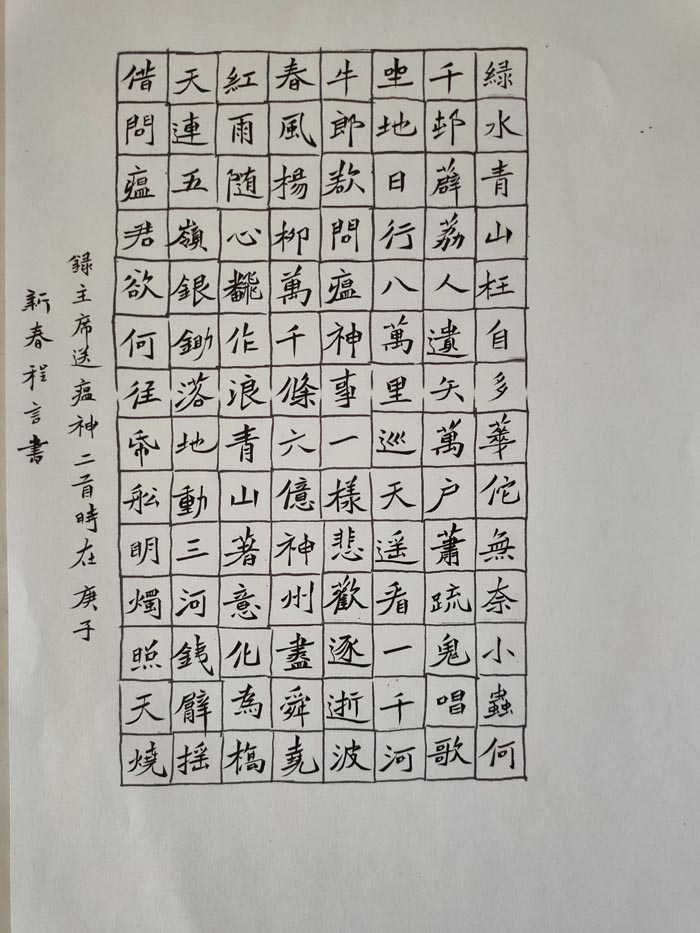 綠水青山枉自多華佗無奈小蟲何
千邨薜荔人遺矢萬戶蕭疏鬼唱歌
坐地日行八萬里巡天遥看一千河
牛郎欵問瘟神事一樣悲歡逐逝波
春風楊柳萬千條六億神州盡舜堯
紅雨随心飜作浪青山著意化為橋
天連五嶺銀鋤落地動三河鐵臂摇
借問瘟君欲何往帋船明燭照天燒
録主席送瘟神二首時在庚子
新春程言書